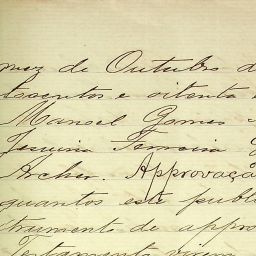 mez de Outubro d
tocentos e oitenta
Manoel Gomes
Ferreira
Archer. Approvaçã
quantos este publi
trumento de appro
Testamento virem